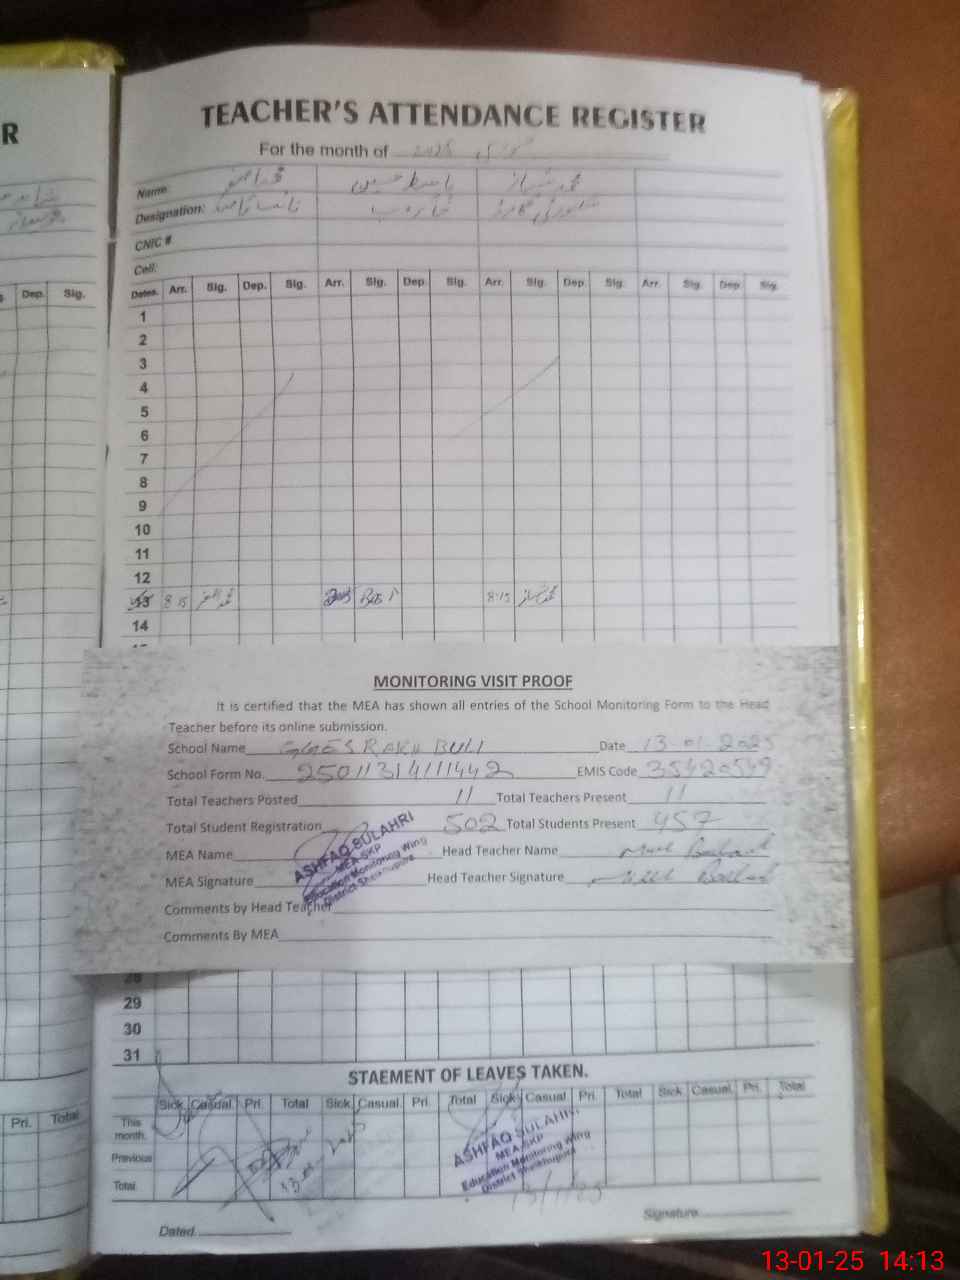 R
TEACHER'S ATTENDANCE REGISTER
For the month of 2025 جنوری
Name: باسط حسین محمد شہباز
Designation: نائب قاصد خاکروب سکیورٹی گارڈ
CNIC #
Cell:
Dep. Sig. Dates. Arr. Sig. Dep. Sig. Arr. Sig. Dep. Sig. Arr. Sig. Dep. Sig. Arr. Sig. Dep. Sig.
1
2
3
4
5
6
7
8
9
10
11
12
13 8:15 8:15
14
MONITORING VISIT PROOF
It is certified that the MEA has shown all entries of the School Monitoring Form to the Head
Teacher before its online submission.
School Name GGES RAKH BULI Date 13-01-2025
School Form No. 25011314111442 EMIS Code 35420549
Total Teachers Posted 11 Total Teachers Present 11
Total Student Registration 502 Total Students Present 457
MEA Name Head Teacher Name
MEA Signature Head Teacher Signature
ASHFAQ BULAHRI
MEA-SKP
Education Monitoring Wing
District Sheikhupura
Comments by Head Teacher
Comments By MEA
28
29
30
31
STAEMENT OF LEAVES TAKEN.
Pri. Total Sick Casual Pri. Total Sick Casual Pri. Total Sick Casual Pri. Total Sick Casual Pri. Total
This
month.
Previous
Total
ASHFAQ BULAHRI
MEA-SKP
Education Monitoring Wing
District Sheikhupura
13/1/25
Dated. Signature
13-01-25 14:13